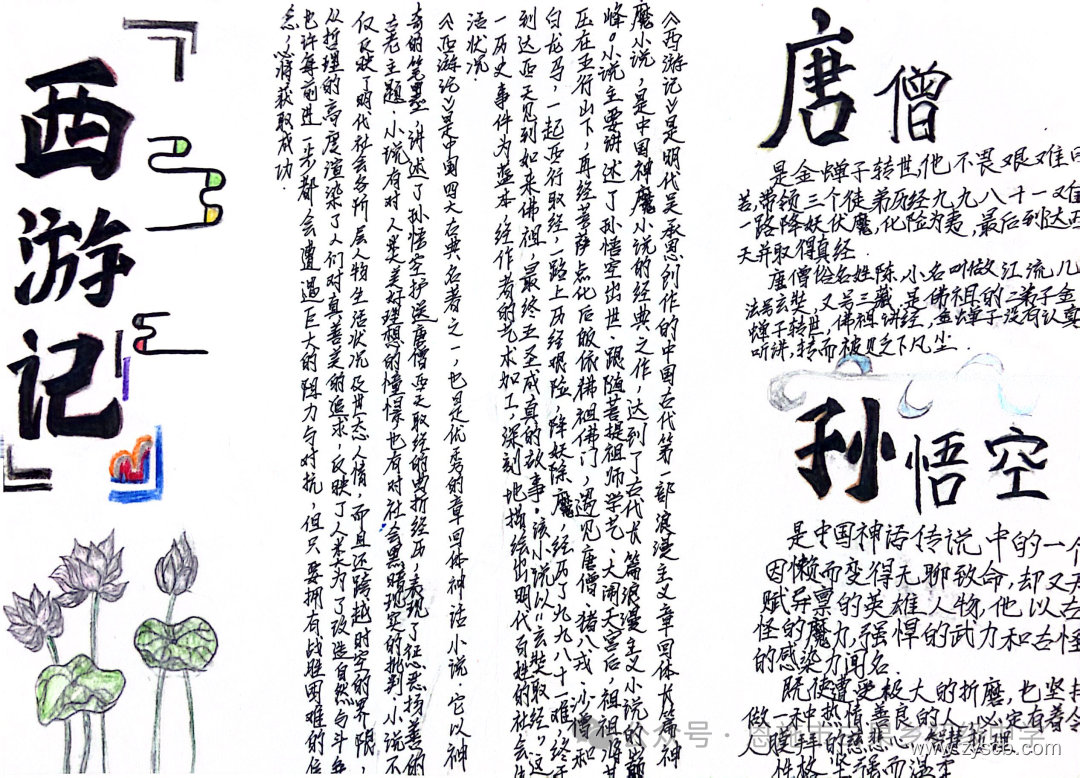 西游记
《西游记》是明代吴承恩创作的中国古代第一部浪漫主义章回体长篇神
魔小说，是中国神魔小说的经典之作，达到了古代长篇浪漫主义小说的巅
峰。小说主要讲述了孙悟空出世、跟随菩提祖师学艺、大闹天宫后，
压在五行山下，耳经菩萨点化后皈依佛祖佛门，遇见唐僧、猪八戒、沙僧和
白龙马，一起西行取经，一路上历经艰险，降妖除魔，经历了九九八十一难，终于
到达西天见到如来佛祖，最终五圣成真的故事。该小说以“玄奘取经”这
一历史事件为蓝本，经作者的艺术加工，深刻地描绘出明代百姓的社会生
活状况
《西游记》是中国四大古典名著之一，也是优秀的章回体神话小说，它以神
奇的笔墨，讲述了孙悟空护送唐僧西天取经的曲折经历，表现了惩恶扬善的
古老主题．小说有对人类美好理想的憧憬也有对社会黑暗现实的批判．小说不
仅反映了明代社会各阶层人物生活状况及世态人情，而且还跨越时空的界限，
从哲理的高度渲染了人们对真善美的追求，反映了人类为了改造自然与斗争
也许每前进一步都会遭遇巨大的阻力与对抗，但只要拥有战胜困难的信
念，必将获取成功．
唐僧
是金蝉子转世，他不畏艰难
苦，带领三个徒弟历经九九八十一难
一路降妖伏魔，化险为夷，最后到达西
天并取得真经．
唐僧俗名姓陈，小名叫做江流儿
法号玄奘，又号三藏，是佛祖的二弟子金
蝉子转世，佛祖讲经，金蝉子没有认真
听讲，转而被贬下凡尘．
孙悟空
是中国神话传说中的一个
因懒而变得无聊致命，却又天
赋异禀的英雄人物，他以古
怪的魔力，强悍的武力和古怪
的感染力闻名．
既使遭受极大的折磨，也坚持
做一种热情善良的人，必定有着令
人膜拜的慈悲心，智慧哲理
性格坚强而温柔
公众号 ·
www.zysc6.com